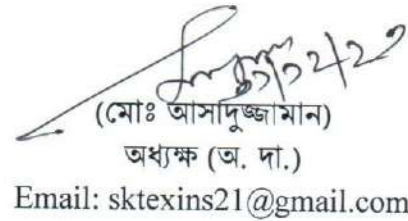 (মোঃ আসাদুজ্জামান)
অধ্যক্ষ (অ. দা.)
Email: sktexins21@gmail.com